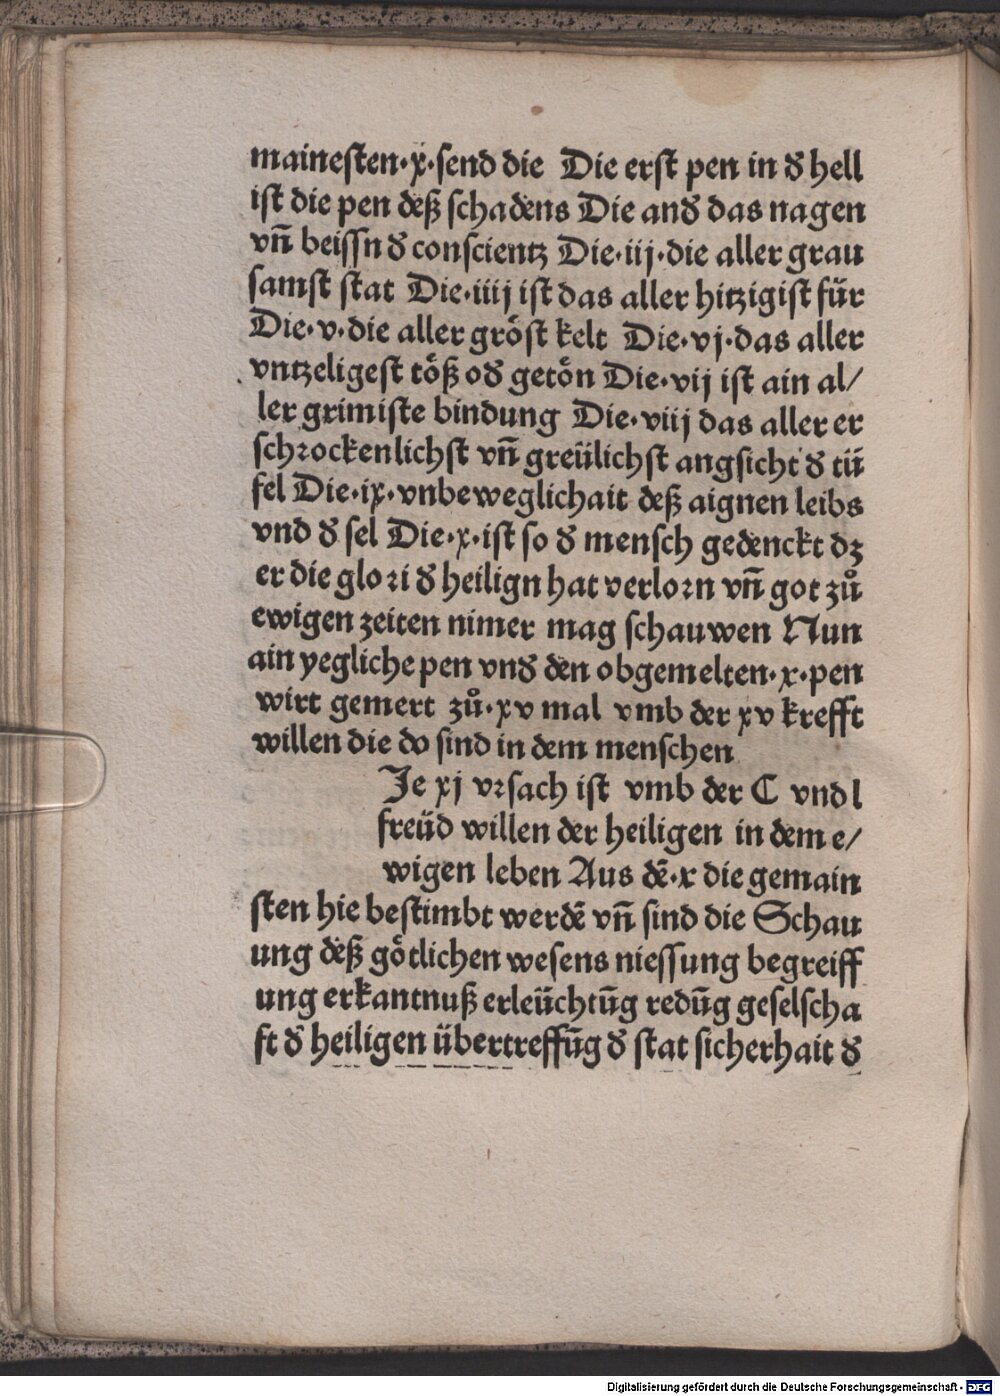 maineſten·x·ſend die Die erſt pen in ð hell
iſt die pen deß ſchadens Die anð das nagen
vn̄ beiſſn ð conſcientz Die·iij·die aller grau
ſamſt ſtat Die·iiij iſt das aller hitzigiſt für
Die·v·die aller gröſt kelt Die·vj·das aller
vntzeligeſt töß oð getön Die·vij iſt ain al/
ler grimiſte bindung Die·viij das aller er
ſchrockenlichſt vn̄ greülichſt angſicht ð tü
fel Die·ix·vnbeweglichait deß aignen leibs
vnd ð ſel Die·x·iſt ſo ð menſch gedenckt dz
er die glori ð heilign hat verlorn vn̄ got zů
ewigen zeiten nimer mag ſchauwen Nun
ain yegliche pen vnð den obgemelten·x·pen
wirt gemert zů·xv mal vmb der xv krefft
willen die do ſind in dem menſchen
Je xj vrſach iſt vmb der C vnd l
freüd willen der heiligen in dem e/
wigen leben Aus dē·x die gemain
ſten hie beſtimbt werdē vn̄ ſind die Schau
ung deß götlichen weſens nieſſung begreiff
ung erkantnuß erleüchtūg redūg geſelſcha
ft ð heiligen übertreffūg ð ſtat ſicherhait ð
Digitalisierung gefördert durch die Deutsche Forschungsgemeinschaft - DFG